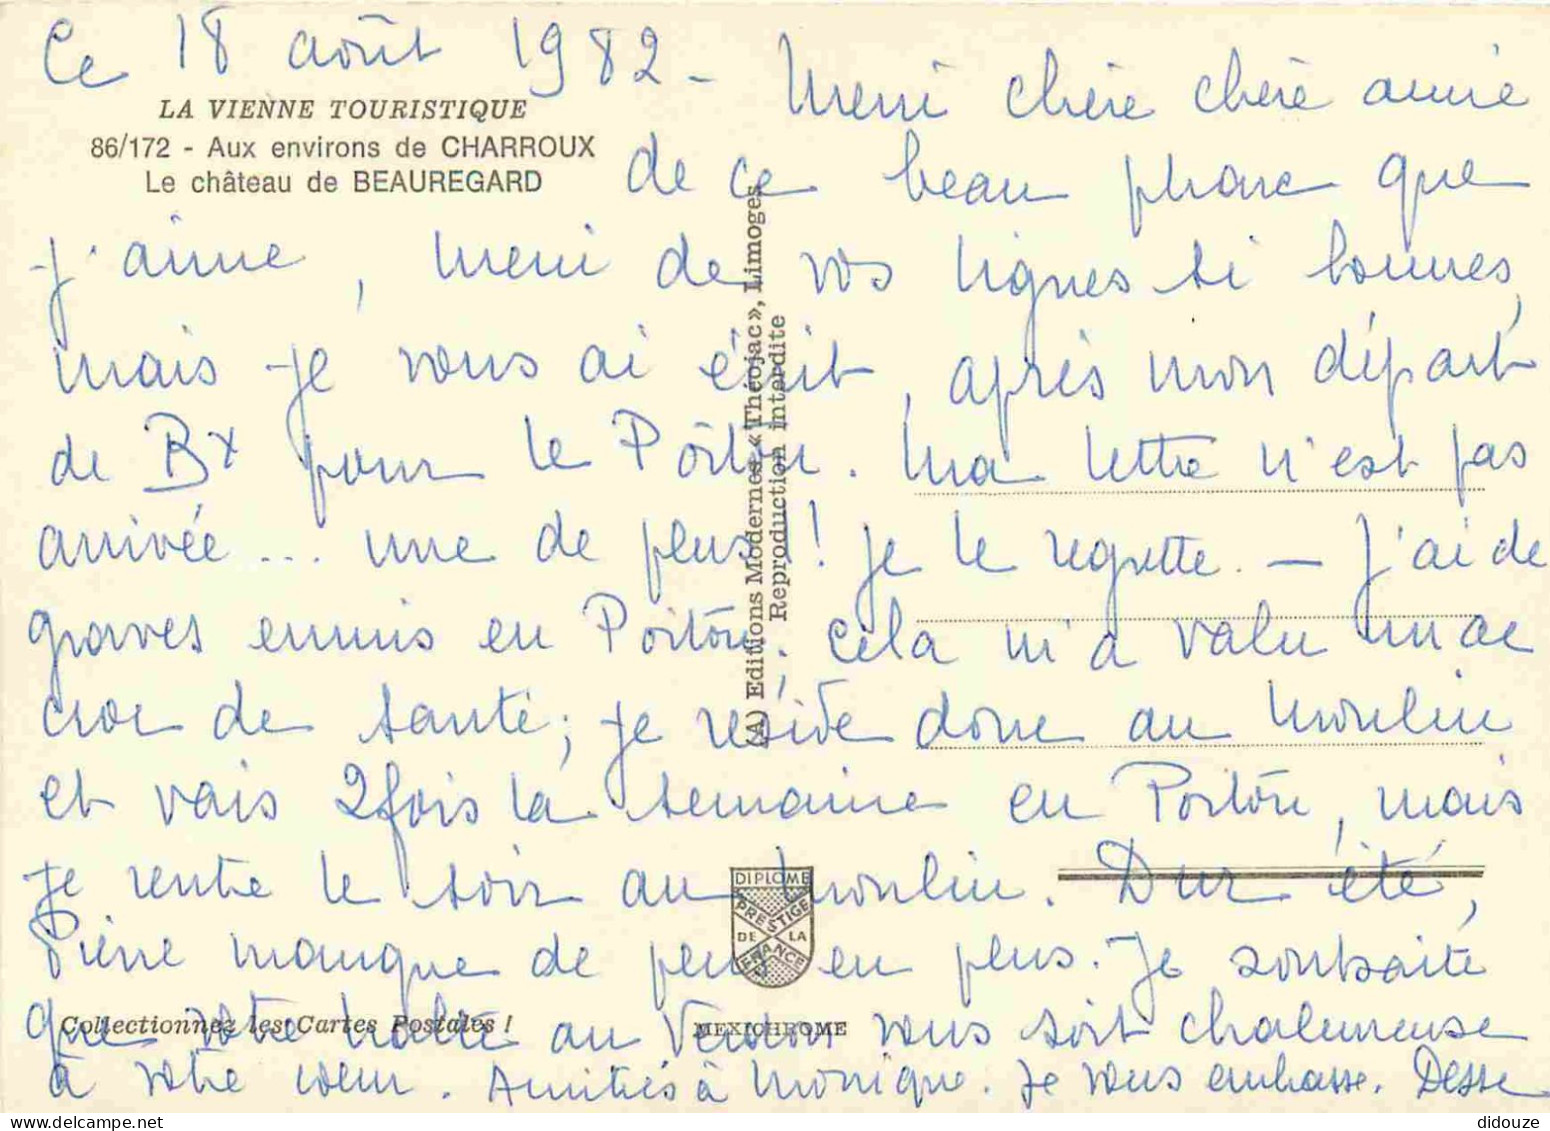 Ce 18 août 1982 - Merci chère chère amie
LA VIENNE TOURISTIQUE
86/172 - Aux environs de CHARROUX
Le château de BEAUREGARD
de ce beau phare que
j'aime, merci de vos lignes si bonnes,
mais je vous ai écrit, après mon départ
de Bx pour le Poitou. Ma lettre n'est pas
arrivée ... une de plus ! Je le regrette. - J'ai de
graves ennuis en Poitou. Cela m'a valu un ac
croc de santé; je réside donc au Moulin
et vais 2 fois la semaine en Poitou, mais
je rentre le soir au Moulin. Dur été,
Pierre manque de plus en plus. Je souhaite
que votre halte au Verdon vous soit chaleureuse
à votre coeur. Amitiés à Monique. Je vous embrasse. Desse
(A) Editions Modernes «Théojac», Limoges
Reproduction interdite
DIPLOME
PRESTIGE
DE LA
FRANCE
Collectionnez les Cartes Postales !
MEXICHROME
didouze